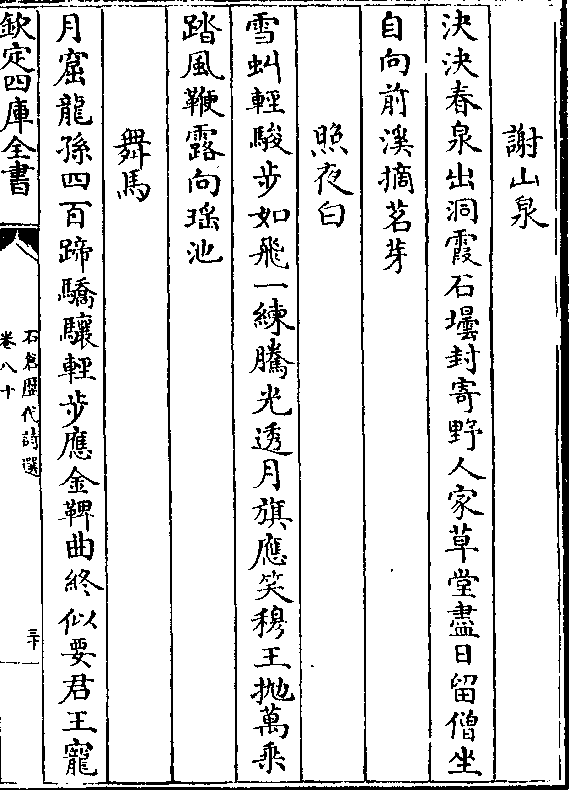 謝山泉
決決春泉出洞霞石壜封寄野人家草堂盡日留僧坐
自向前溪摘茗芽
照夜白
雪虬輕駿步如飛一練騰光透月旗應笑穆王抛萬乘
踏風鞭露向瑶池
舞馬
月窟龍孫四百蹄驕驤輕步應金鞞曲終似要君王寵
欽定四庫全書
石倉歴代詩選
卷八十
三十